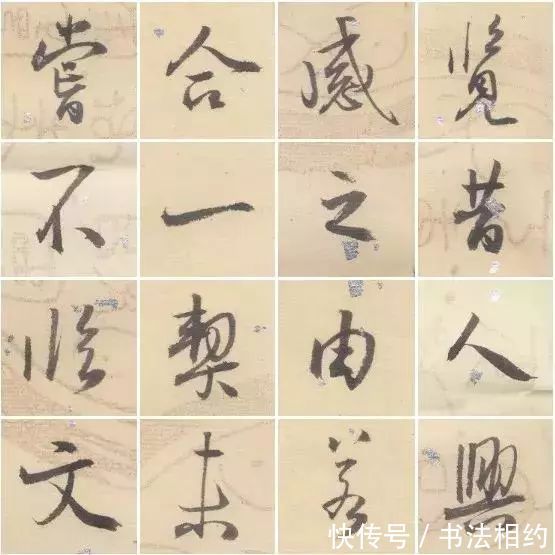 覽昔人興
感之由若
合一契未
嘗不臨文
快传号 / 书法相约